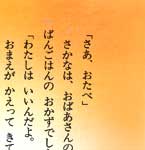 「さあ、おたべ」
さかなは、おばあさんの
ばんごはんの おかずでし
「わたしは いいんだよ。
おまえが かえって きて